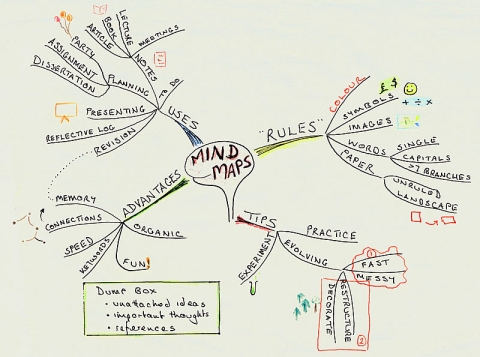 MIND
MAPS
USES
NOTES
MEETINGS
LECTURE
BOOK
ARTICLE
TO DO
PLANNING
PARTY
ASSIGNMENT
DISSERTATION
PRESENTING
REFLECTIVE LOG
REVISION
"RULES"
COLOUR
SYMBOLS
£ $
+ ÷ x
IMAGES
WORDS
SINGLE
CAPITALS
BRANCHES
PAPER
UNRULED
LANDSCAPE
TIPS
PRACTICE
EVOLVING
1
FAST
MESSY
RESTRUCTURE
DECORATE
2
EXPERIMENT
ADVANTAGES
MEMORY
CONNECTIONS
SPEED
KEYWORDS
FUN!
ORGANIC
Dump Box
• unattached ideas
• important thoughts
• references